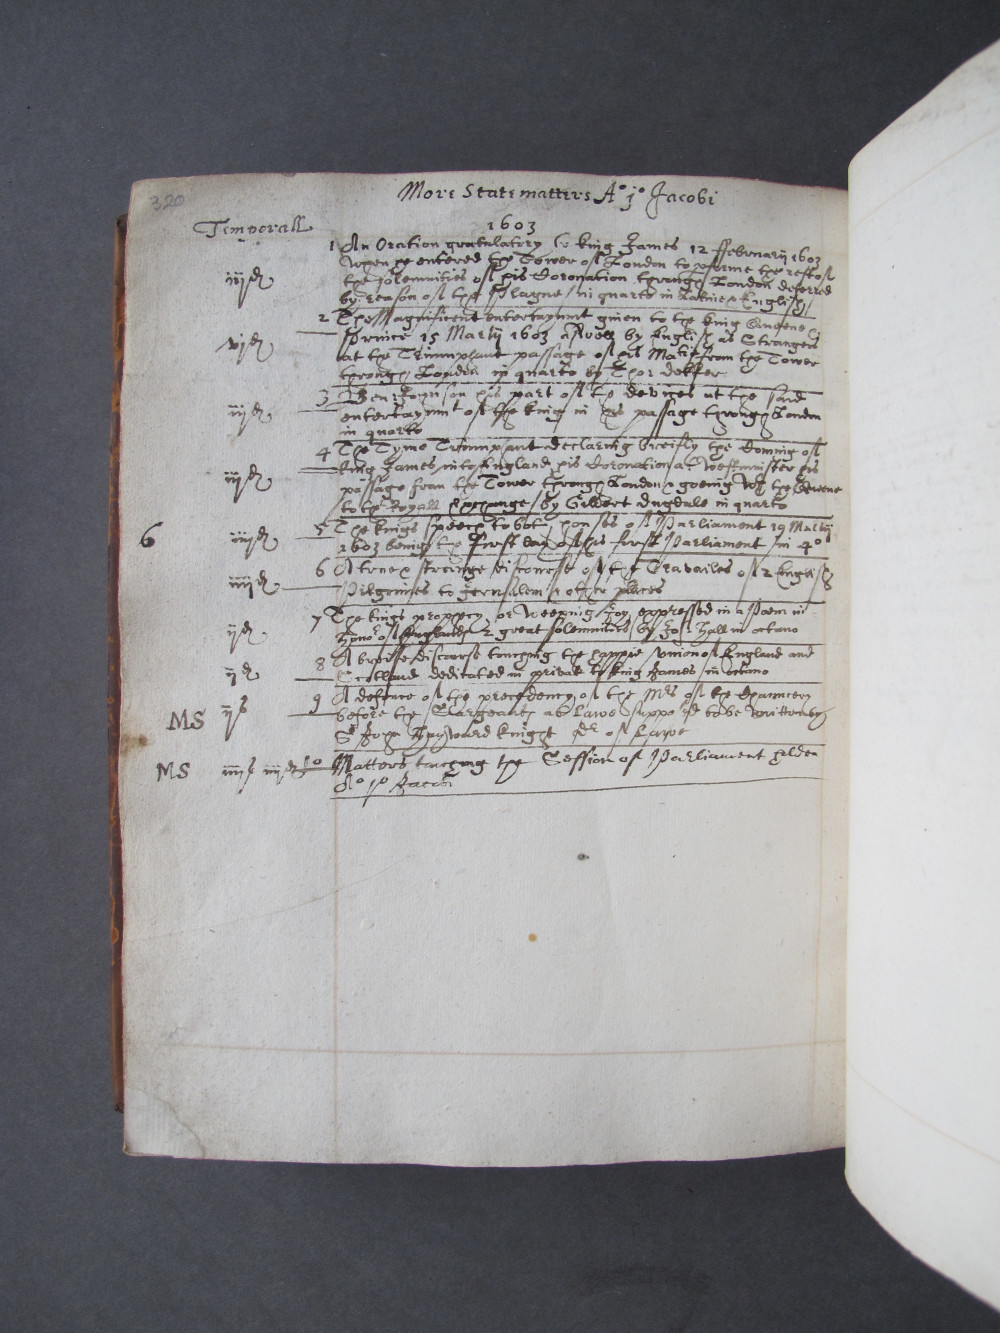 320
More State matters A.o j.o Jacobi
Temporall
1603
1 An Oration gratulatory to king James 12 ffebruarij 1603
when he entered the Tower of London to performe the rest of
iiijd the solemnities of his Coronation through London deferred
by reason of the Plague / in quarto in Latine & English /
2 The Magnificent entertaynmt given to the king Queene &
vjd prince 15 Martij 1603 aswell by English as Strangers
at the Triumphant passage of his Matie from the Tower
through London in quarto by Thos dekker
3 Ben: Jonson his part of the devices at the said
iijd entertaynmt of the king in his passage through London
in quarto
4 The Tyme Triumphant declaring breifly the Coming of
king James into England his Coronation at Westminster his
iijd passage from the Tower through London & goeing wth the Queene
to the Royall Exchange / by Gilbert dugdale in quarto
6 iiijd 5 The kings speech to both houses of Parliament 19 Martij
1603 being the first day of this first Parliament / in 4o
iiijd 6 A true & strange discourse of the Travailes of 2 English
Pilgrimes to Jerusalem & other places
7 The kings prophecy or weeping Joy expressed in a Poem in
ijd honor of Englands 2 great solemnities by Jos: Hall in octavo
8 A breiffe discourse touching the happie Union of England and
ijd Scotland dedicated in private to king James / in octavo
9 A defence of the precedency of the Mrs of the Chauncery
MS ijs before the Seargeants at Lawe suppo'ed to be written by
Sr John Hayward knight Dr of Lawe
MS iiijs iiijd 10 Matters touching the Session of Parliament holden
Ao jo Jacobi